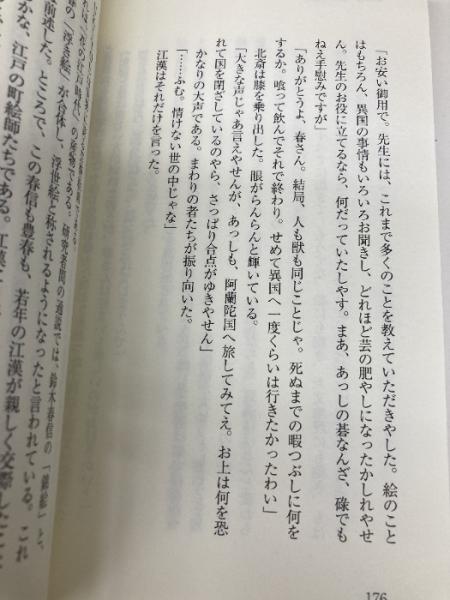 「お安い御用で。先生には、これまで多くのことを教えていただきやした。絵のこと
はもちろん、異国の事情もいろいろお聞きし、どれほど芸の肥やしになったかしれやせ
ん。先生のお役に立てるなら、何だっていたしやす。まあ、あっしの碁なんざ、碌でも
ねえ手慰みですが」
「ありがとうよ、春さん。結局、人も獣も同じことじゃ。死ぬまでの暇つぶしに何を
するか。喰って飲んでそれで終わり。せめて異国へ一度くらいは行きたかったわい」
北斎は膝を乗り出した。眼がらんらんと輝いている。
「大きな声じゃあ言えやせんが、あっしも、阿蘭陀国へ旅してみてえ。お上は何を恐
れて国を閉ざしているのやら、さっぱり合点がゆきやせん」
かなりの大声である。まわりの者たちが振り向いた。
「……ふむ。情けない世の中じゃな」
江漢はそれだけを言った。
176
である。研究者間の通説では、鈴木春信の「錦絵」と、
の「浮き絵」が合体し、浮世絵と称されるようになったと言われている。これ
前述した。ところで、この春信も豊春も、若年の江漢が親しく交際した
かな、江戸の町絵師たちである。